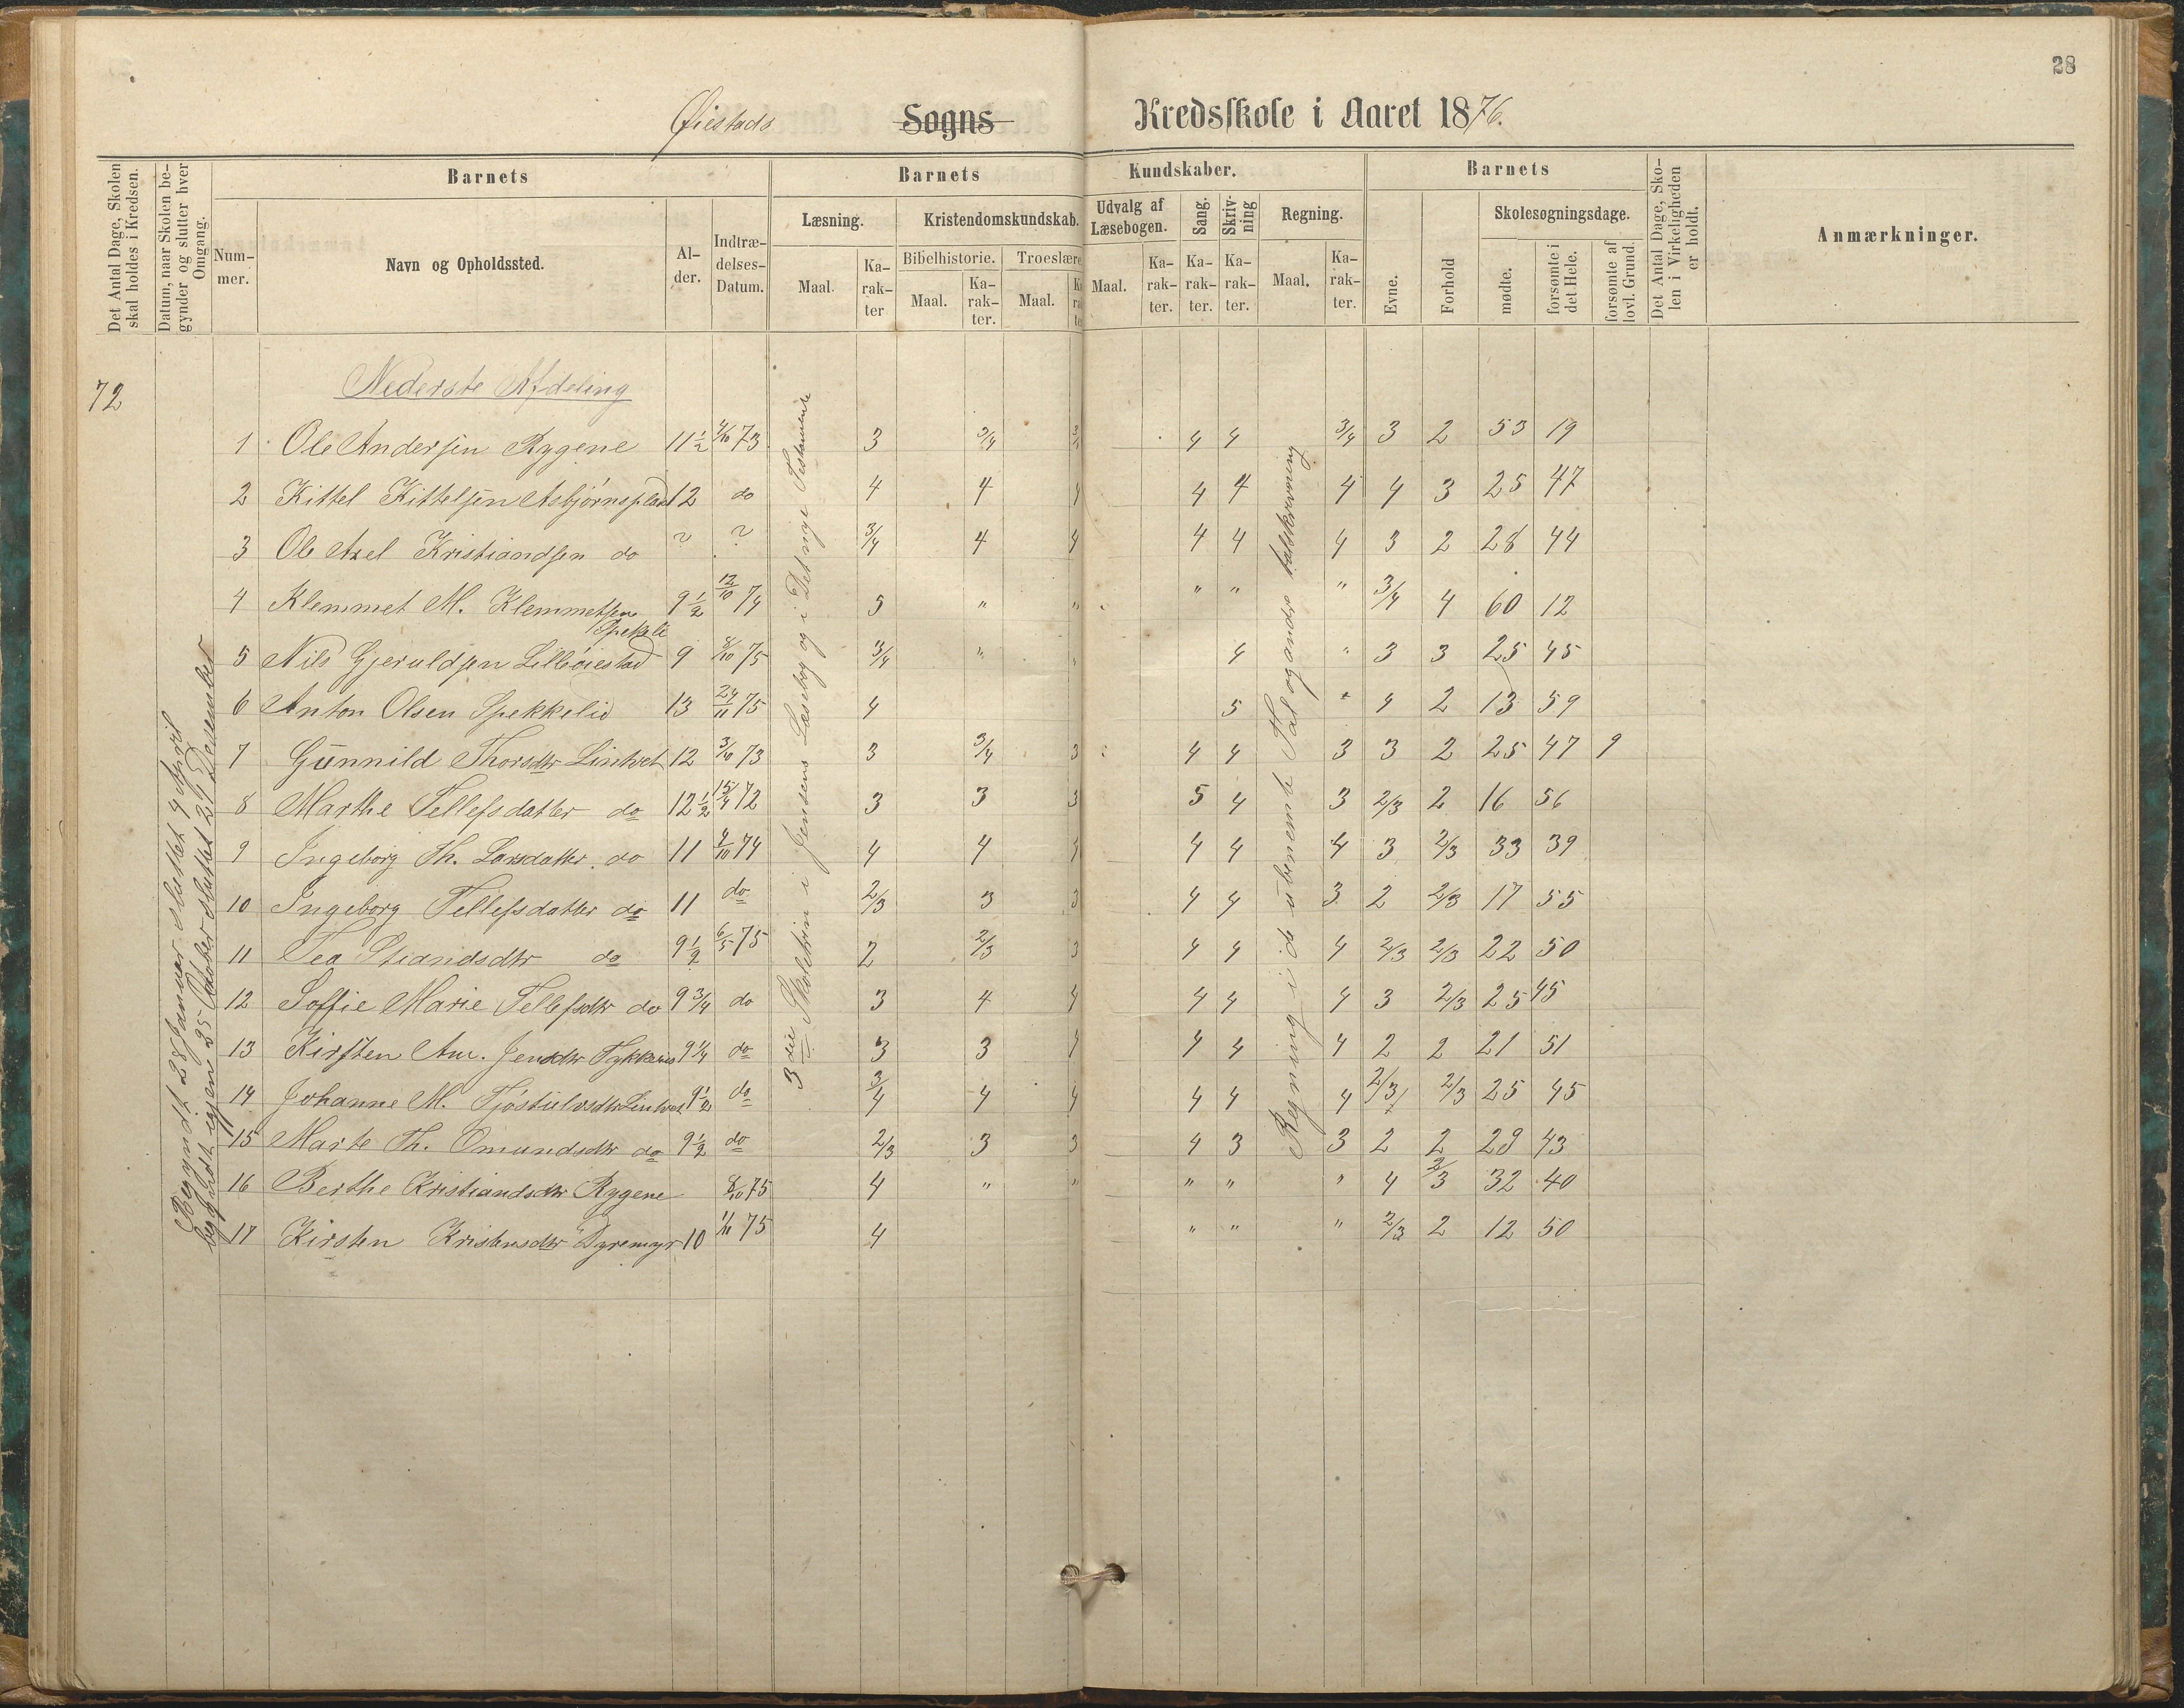 28
Øiestads Sogns Kredsskole i Aaret 1876.
Det Antal Dage, Skolen skal holdes i Kredsen.
Datum, naar Skolen begynder og slutter hver Omgang.
Barnets
Nummer.
Navn og Opholdssted.
Alder.
Indtrædelses-Datum.
Barnets Kundskaber.
Læsning.
Maal.
Karakter
Kristendomskundskab.
Bibelhistorie.
Maal.
Karakter.
Troeslære
Maal.
Udvalg af Læsebogen.
Maal.
Karakter.
Sang.
Karakter.
Skrivning
Karakter.
Regning.
Maal.
Karakter.
Barnets
Evne.
Forhold
Skolesøgningsdage.
mødte.
forsømte i det Hele.
forsømte af lovl. Grund.
Det Antal Dage, Skolen i Virkeligheden er holdt.
Anmærkninger.
72
Nederste Afdeling
Begyndt 28 Januar sluttet 4 April
begyndt igjen 25 Oktober sluttet 21 Desember
3die Skoletrin i Jensens Læsebog og i Det nye Testamente
Regning i de ubenevnte Tal og andre talskrivning
1 Ole Andersen Rygene 11 1/2 4/10 73 3 3/4 3/4 4 4 3/4 3 2 53 19
2 Kittel Kittelsen Asbjørnsplads 12 do 4 4 4 4 4 4 4 3 25 47
3 Ole Axel Kristiandsen do ? ? 3/4 4 4 4 4 4 3 2 28 44
4 Klemmet M. Klemmetsen Spekeli 9 1/2 12/10 74 5 " " " " " 3/4 4 60 12
5 Nils Gjeruldsen Lilleøiestad 9 8/10 75 3/4 " 4 " 3 3 25 45
6 Anton Olsen Spekkelid 13 24/11 75 4 5 " 4 2 13 59
7 Gunnild Thorsdtr Lintvet 12 3/10 73 3 3/4 3 4 4 3 3 2 25 47 9
8 Marthe Tellefsdatter do 12 1/2 15/4 72 3 3 3 5 4 3 2/3 2 16 56
9 Ingeborg Th. Larsdatter do 11 9/10 74 4 4 4 4 4 4 3 2/3 33 39
10 Ingeborg Tellefsdatter do 11 do 2/3 3 3 4 4 3 2 2/3 17 55
11 Tea Stiandsdtr do 9 1/2 6/5 75 2 2/3 3 4 4 4 2/3 2/3 22 50
12 Soffie Marie Tellefsdtr do 9 3/4 do 3 4 4 4 4 4 3 2/3 25 45
13 Kirsten An. Jensdtr 9 1/4 do 3 3 4 4 4 4 2 2 21 51
14 Johanne M. Tjøstulvsdtr Lintvet 9 1/2 do 3/4 4 4 4 4 4 2/3 2/3 25 45
15 Marte Th. Omundsdtr do 9 1/2 do 2/3 3 3 4 3 3 2 2 29 43
16 Berthe Kristiandsdtr Rygene 8/10 75 4 " " " " " 4 2/3 32 40
17 Kirsten Kristensdtr Dyremyr 10 11/11 75 4 " " " 2/3 2 12 50